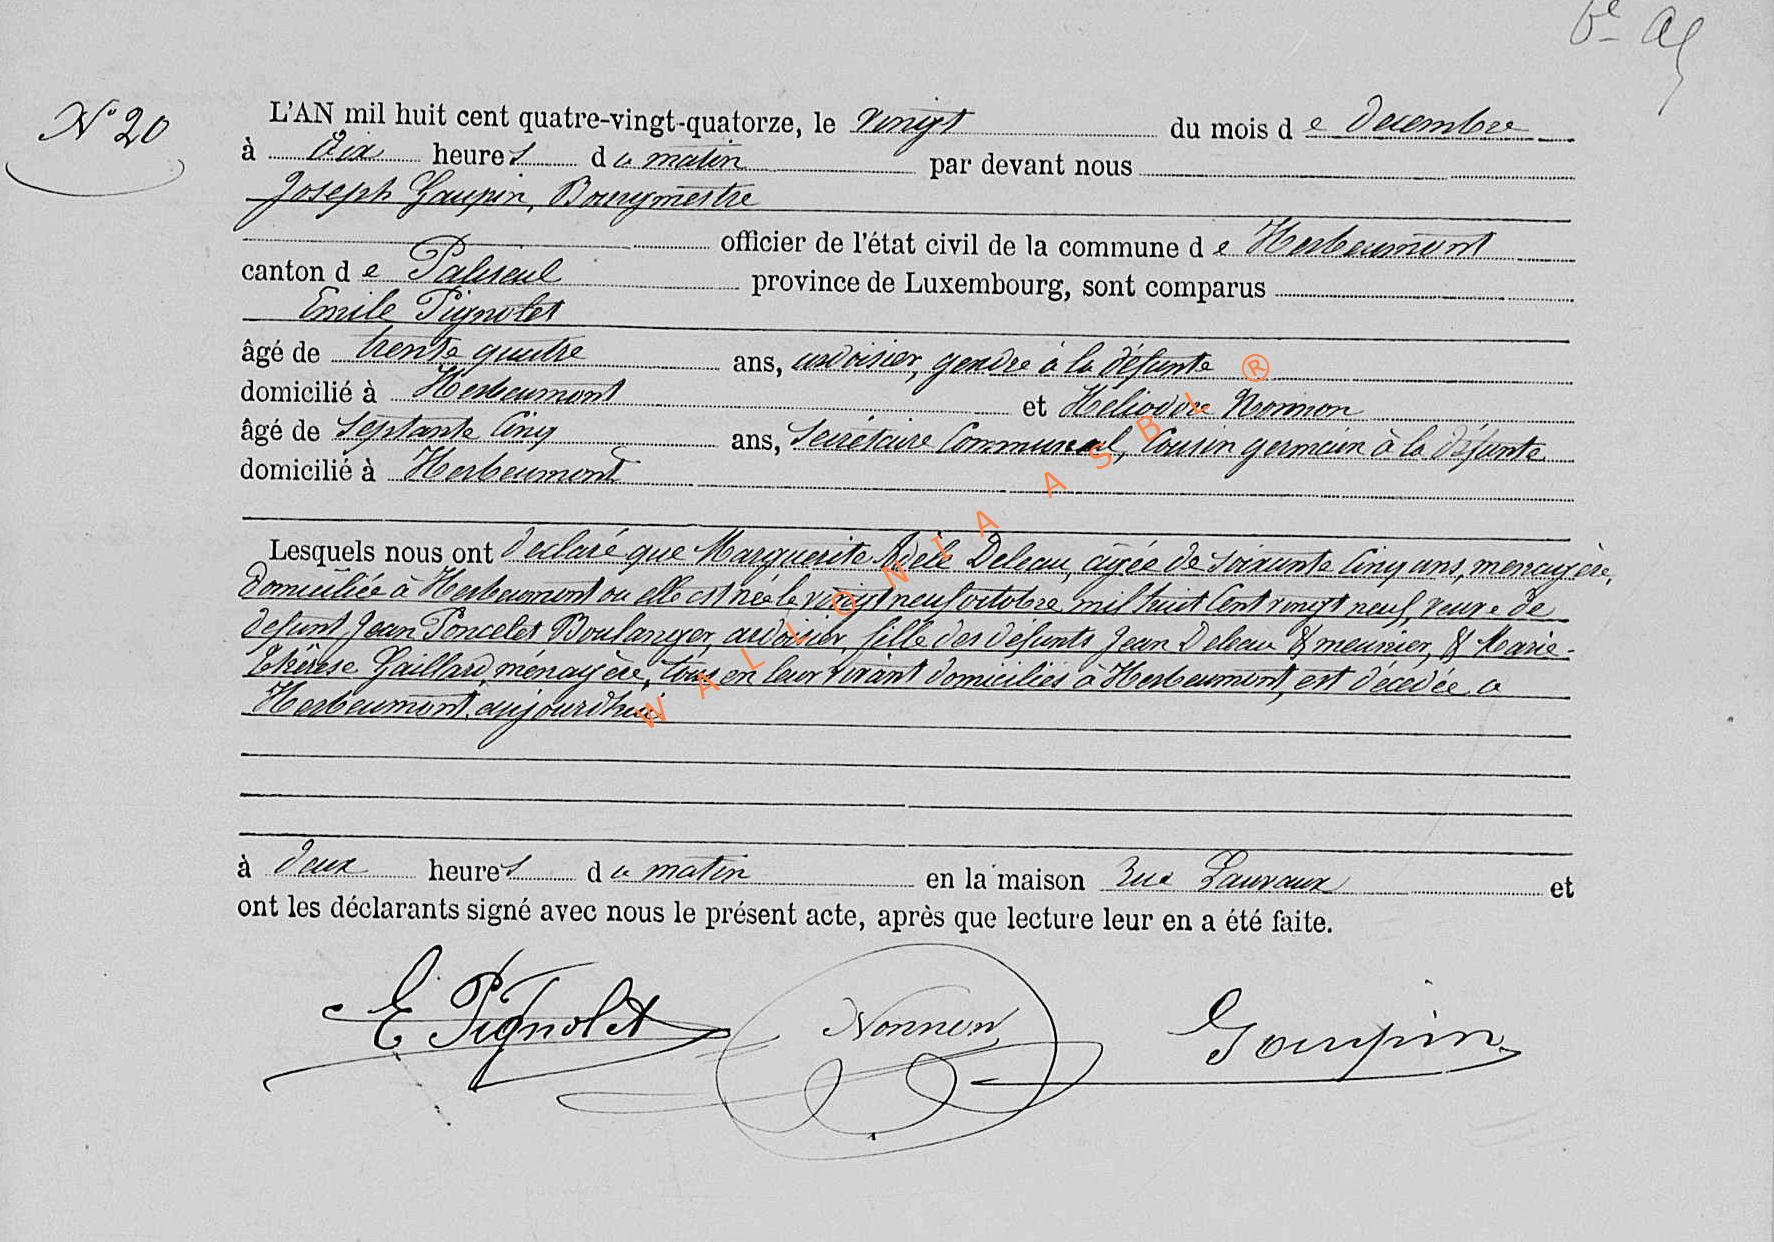 Nº 20
L'AN mil huit cent quatre-vingt-quatorze, le vingt du mois de decembre
à dix heures du matin par devant nous
Joseph Goupin, Bourgmestre
officier de l'état civil de la commune de Herbeumont
canton de Paliseul province de Luxembourg, sont comparus
Emile Pignolet
âgé de trente quatre ans, ardoisier, gendre à la défunte
domicilié à Herbeumont et Héliodore Nonnon
âgé de septante cinq ans, secrétaire Communal, Cousin germain à la défunte
domicilié à Herbeumont
Lesquels nous ont declaré que Marguerite Adèle Deleau, agée de soixante Cinq ans, menagère,
domiciliée à Herbeumont ou elle est née le vingt neuf octobre mil huit Cent vingt neuf, veuve de
defunt Jean Poncelet Boulanger, ardoisier, fille des défunts Jean Deleau meunier, & Marie-
Thérèse Gaillard, ménagère, tous en leur vivant domiciliés à Herbeumont, est décédée a
Herbeumont, aujourd'hui
à deux heures du matin en la maison rue Lauvaux et
ont les déclarants signé avec nous le présent acte, après que lecture leur en a été faite.
E Pignolet Nonnon Goupin
WALLONIA ASBL ®